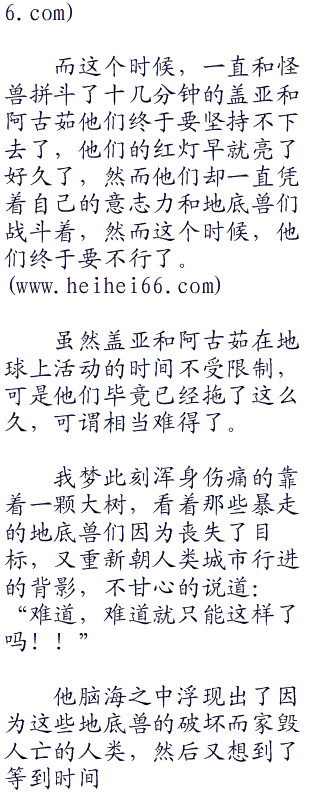 6.com)
　　而这个时候，一直和怪
兽拼斗了十几分钟的盖亚和
阿古茹他们终于要坚持不下
去了，他们的红灯早就亮了
好久了，然而他们却一直凭
着自己的意志力和地底兽们
战斗着，然而这个时候，他
们终于要不行了。
(www.heihei66.com)
　　虽然盖亚和阿古茹在地
球上活动的时间不受限制，
可是他们毕竟已经拖了这么
久，可谓相当难得了。
　　我梦此刻浑身伤痛的靠
着一颗大树，看着那些暴走
的地底兽们因为丧失了目
标，又重新朝人类城市行进
的背影，不甘心的说道：
“难道，难道就只能这样了
吗！！”
　　他脑海之中浮现出了因
为这些地底兽的破坏而家毁
人亡的人类，然后又想到了
等到时间